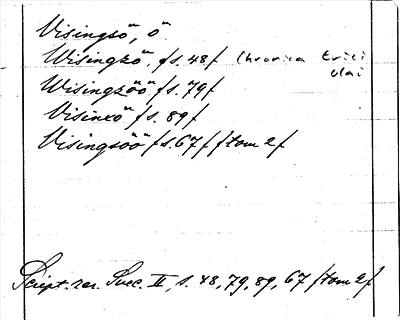 Visingsö, ö.
Wisingzö. /s. 48/ Chronica Erici
Olai
Wisingzöö /s. 79/
Visinxö /s. 89/
Visingsöö /s. 67/ /tom 2/
Script. rer. Svec. II, s. 48, 79, 89, 67 /tom 2/